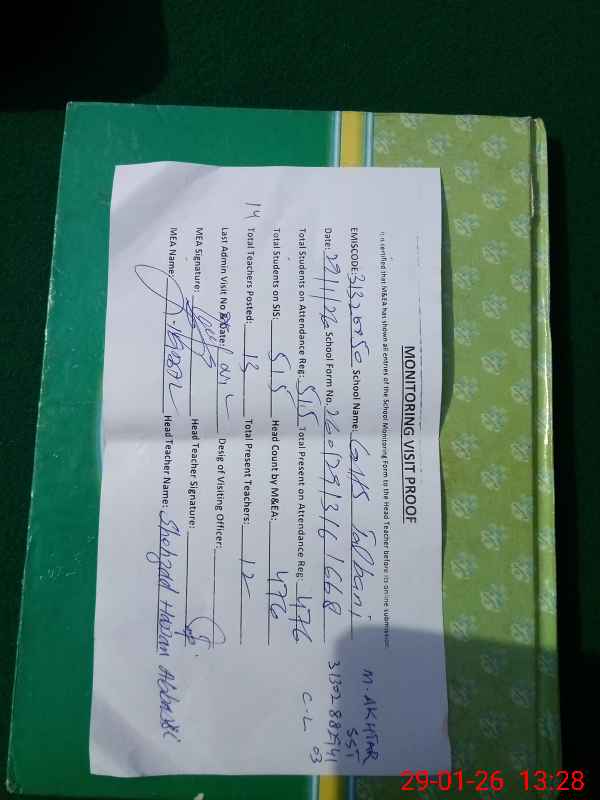 MONITORING VISIT PROOF
It is certified that M&EA has shown all entries of the School Monitoring Form to the Head Teacher before its online submission.
EMISCODE: 31320250 School Name: GHS Talbani
Date: School Form No. 2601291316 1668
Total Students on Attendance Reg: 515 Total Present on Attendance Reg: 476
Total Students on SIS: 515 Head Count by M&EA: 476
14 Total Teachers Posted: 13 Total Present Teachers: 12
Last Admin Visit No & Date: Desig of Visiting Officer:
MEA Signature: Head Teacher Signature:
MEA Name: Head Teacher Name: Shehzad Hassan
M. AKHTAR
SST
C-L 03
29-01-26 13:28